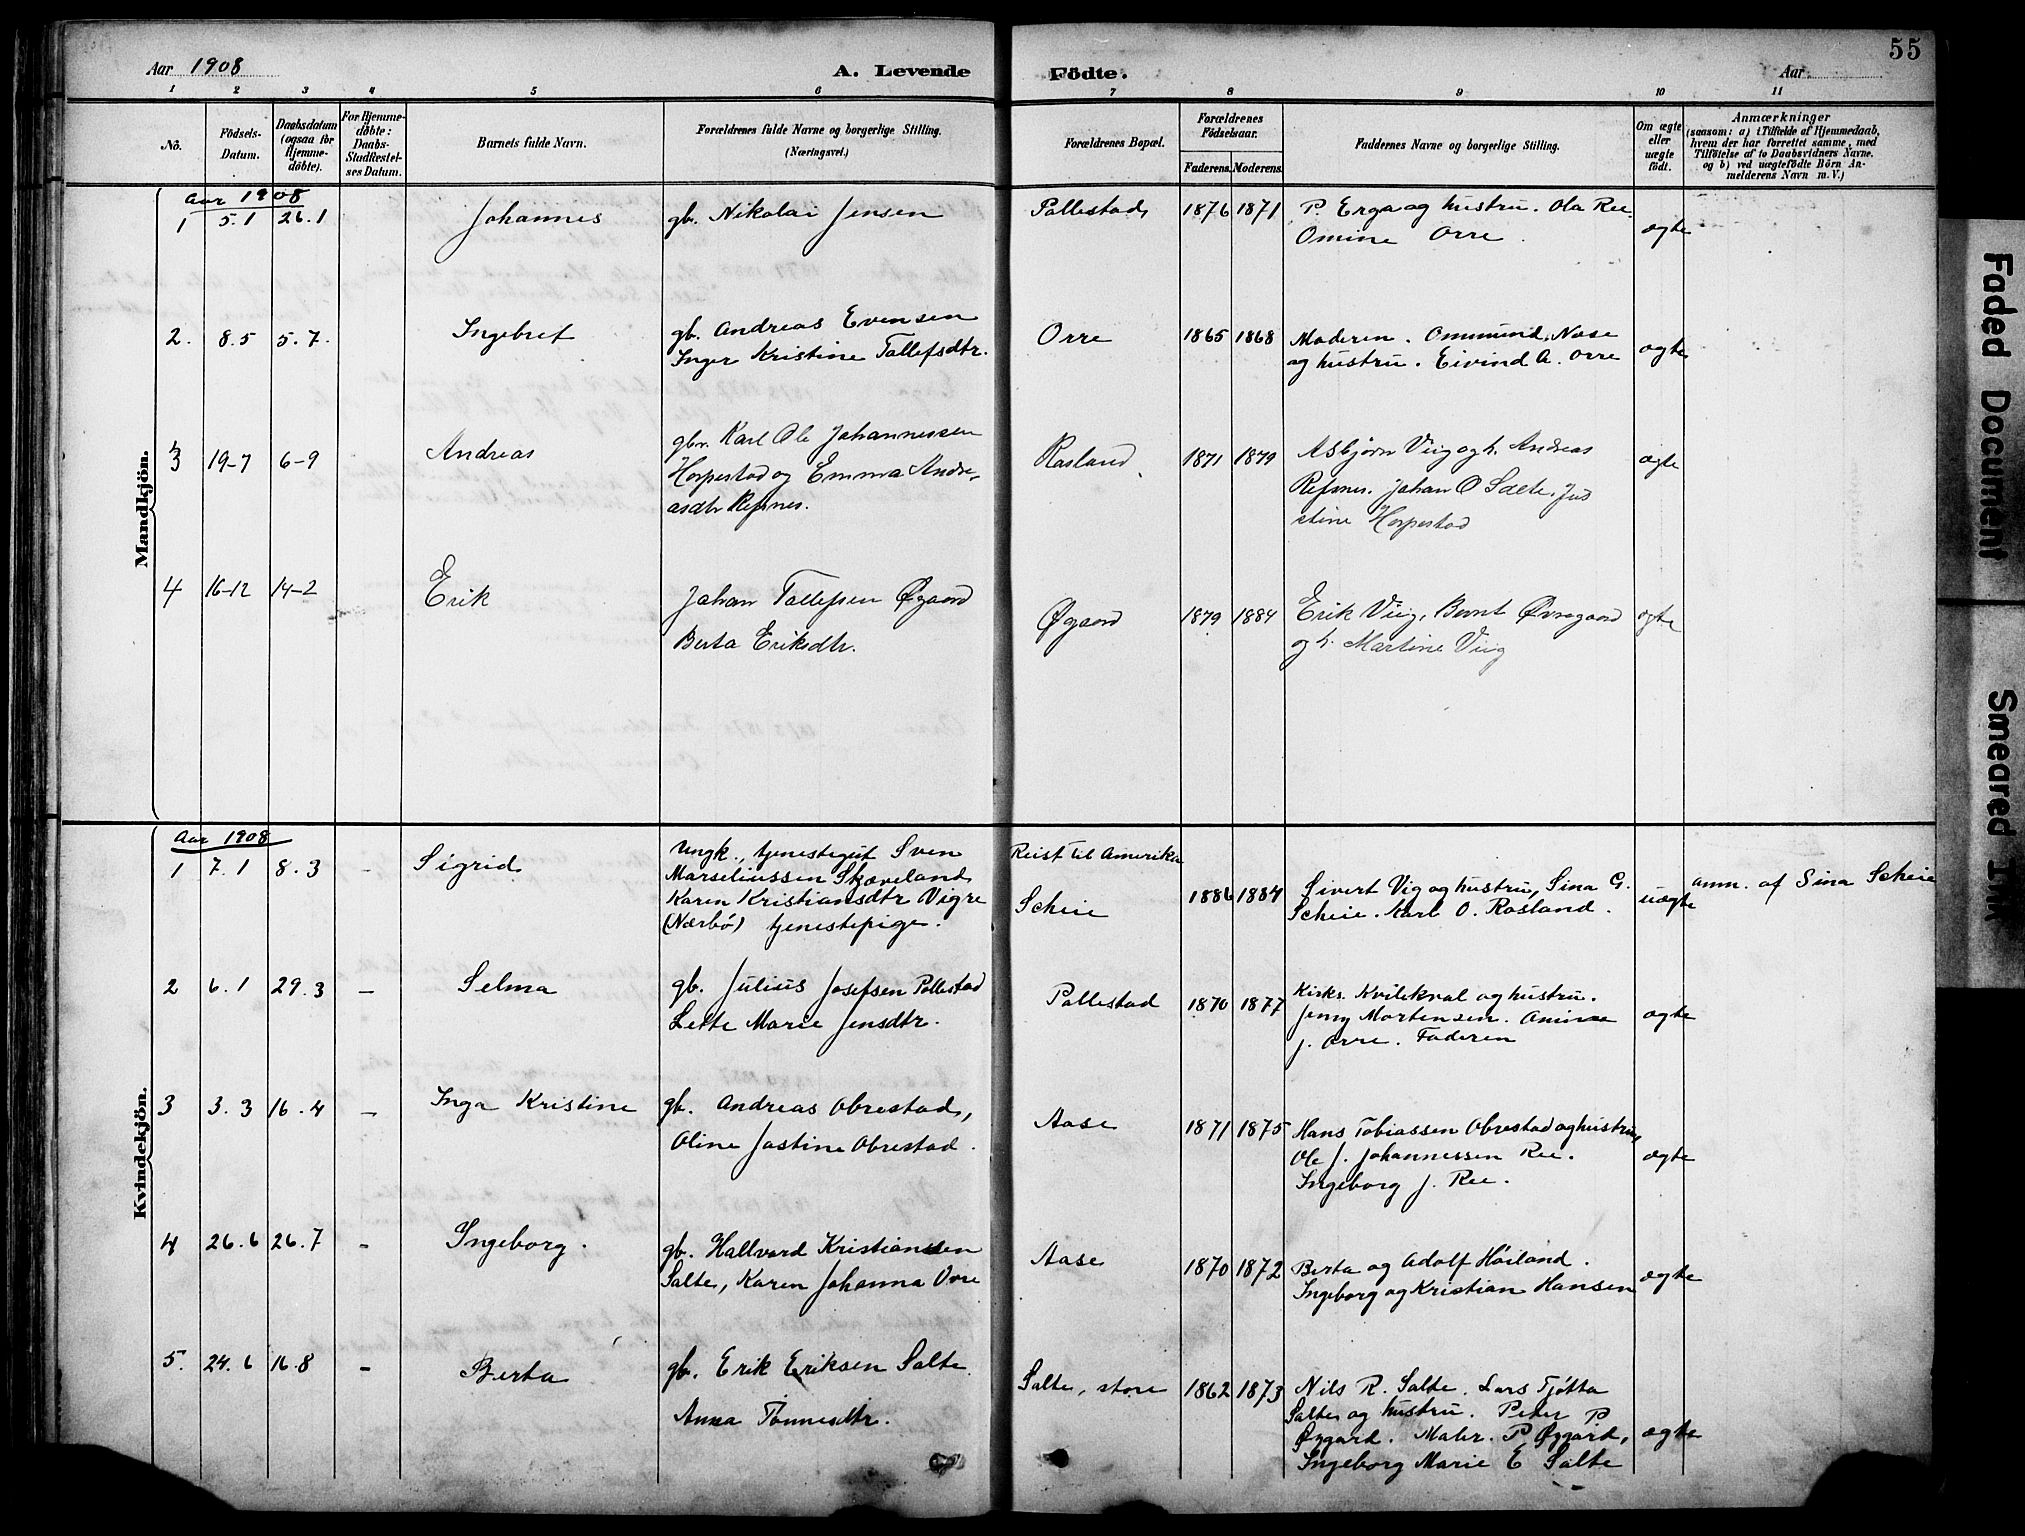 Aar 1908
A. Levende
Födte.
Aar
55
1 2 3 4 5 6 7 8 9 10 11
Nô.
Födsels-
Datum.
Daabsdatum
(ogsaa for
Hjemme-
döbte).
For Hjemme-
döbte:
Daabs-
Stadfæstel-
ses Datum.
Barnets fulde Navn.
Forældrenes fulde Navne og borgerlige Stilling.
(Næringsvei.)
Forældrenes Bopæl.
Forældrenes
Födselsaar.
Faderens. Moderens.
Faddernes Navne og borgerlige Stilling.
Om ægte
eller
uægte
födt.
Anmærkninger
(saasom: a) i Tilfælde af Hjemmedaab,
hvem der har forrettet samme, med
Tilföielse af to Daabsvidners Navne.
og b) ved uægtefödte Börn An-
melderens Navn m. V.)
Mandkjön.
Aar 1908
1 5.1 26.1 Johannes gb. Nikolai Jensen Pollestad 1876 1871 P. Erga og hustru. Ola Ree
Omine Orre ægte
2. 8.5 5.7. Ingebret gb. Andreas Evensen
Inger Kristine Tollefsdtr. Orre 1865 1868 Moderen. Ommund Nase
og hustru. Eivind A. Orre ægte
3 19-7 6-9 Andreas gbr. Karl Ole Johannessen
Horpestad og Emma Andre-
asdtr Refsnes. Rosland 1871 1879 Asbjørn Viig og h. Andreas
Refsnes. Johan O Salte. Jus
stine Horpestad ægte
4 16-12 14-2 Erik Johan Tollefsen Øgaard
Berta Eriksdtr. Øgaard 1879 1884 Erik Viig, Bernt Øvregaard
og h. Martine Viig ægte
Kvindekjön.
Aar 1908
1 7.1 8.3 - Sigrid Ungk., tjenestegut Sven
Marseliussen Skæveland
Karen Kristiansdtr Vigre
(Nærbø) tjenestepige. Reist til Amerika
Scheie 1886 1884 Sivert Vig og hustru, Sina G.
Scheie. Karl O. Rosland. uægte anm. af Sina Scheie
2 6.1 29.3 - Selma gb. Julius Josefsen Pollestad
Lette Marie Jensdtr. Pollestad 1870 1877 Kirks. Kvilekval og hustru.
Jenny Mortensen. Omine
J. Orre. Faderen ægte
3 3.3 16.4 - Inga Kristine gb. Andreas Obrestad,
Oline Jostine Obrestad. Aase 1871 1875 Hans Tobiassen Obrestad og hustru,
Ole J. Johannessen Ree.
Ingeborg J. Ree. ægte
4 26.6 26.7 - Ingeborg. gb. Hallvard Kristianssen
Salte, Karen Johanna Orre Aase 1870 1872 Berta og Adolf Höiland.
Ingeborg og Kristian Hansen ægte
5. 24.6 16.8 - Berta gb. Erik Eriksen Salte
Anna Tønnesdtr. Salte, store 1862 1873 Nils R. Salte. Lars Tjötta
Salte og hustru. Peter P
Øygard. Malir. P Øygard,
Ingeborg Marie E Salte ægte
Faded Document
Smeared Ink